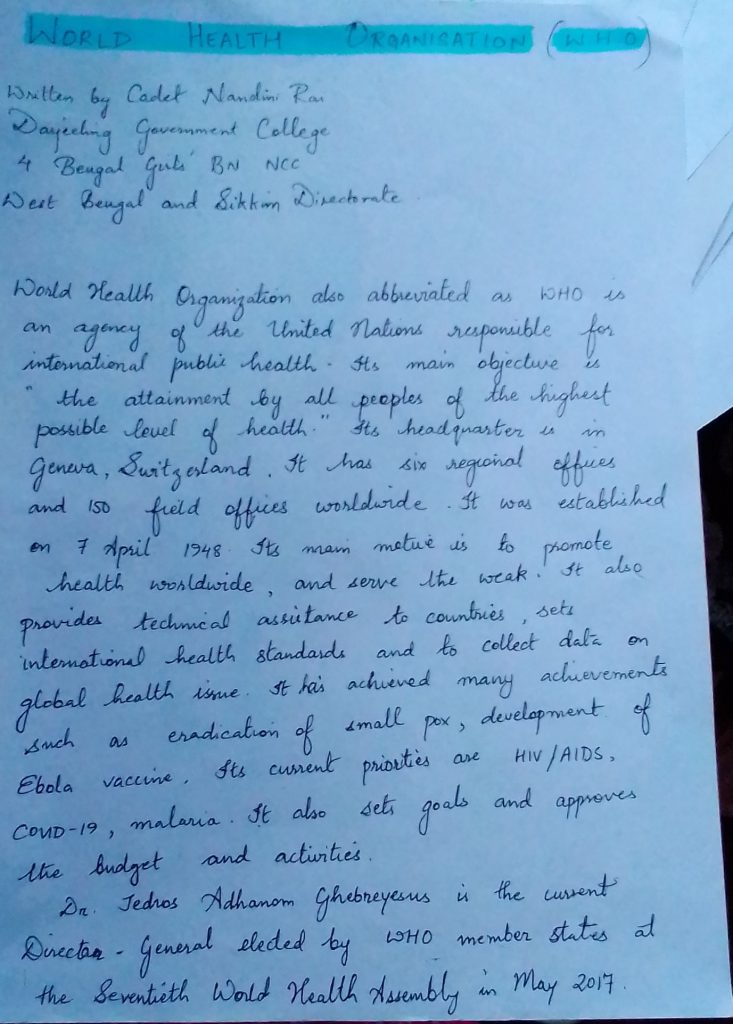 WORLD HEALTH ORGANISATION (WHO)
Written by Cadet Nandini Rai
Darjeeling Government College
4 Bengal Girls' BN NCC
West Bengal and Sikkim Directorate.
World Health Organization also abbreviated as WHO is
an agency of the United Nations responsible for
international public health. Its main objective is
" the attainment by all peoples of the highest
possible level of health." Its headquarter is in
Geneva, Switzerland. It has six regional offices
and 150 field offices worldwide. It was established
on 7 April 1948. Its main motive is to promote
health worldwide, and serve the weak. It also
provides technical assistance to countries, sets
international health standards and to collect data on
global health issue. It has achieved many achievements
such as eradication of small pox, development of
Ebola vaccine. Its current priorities are HIV/AIDS,
COVID-19, malaria. It also sets goals and approves
the budget and activities.
Dr. Tedros Adhanom Ghebreyesus is the current
Director-General elected by WHO member states at
the Seventieth World Health Assembly in May 2017.